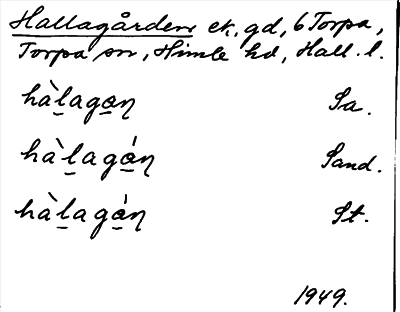 Hallagården ek. gd, 6 Torpa,
Torpa sn, Himle hd, Hall. l.
hàl̠aga̠ŋ Sa.
hàl̠agá̠ŋ Sand.
hàl̠agá̠ŋ St.
1949.